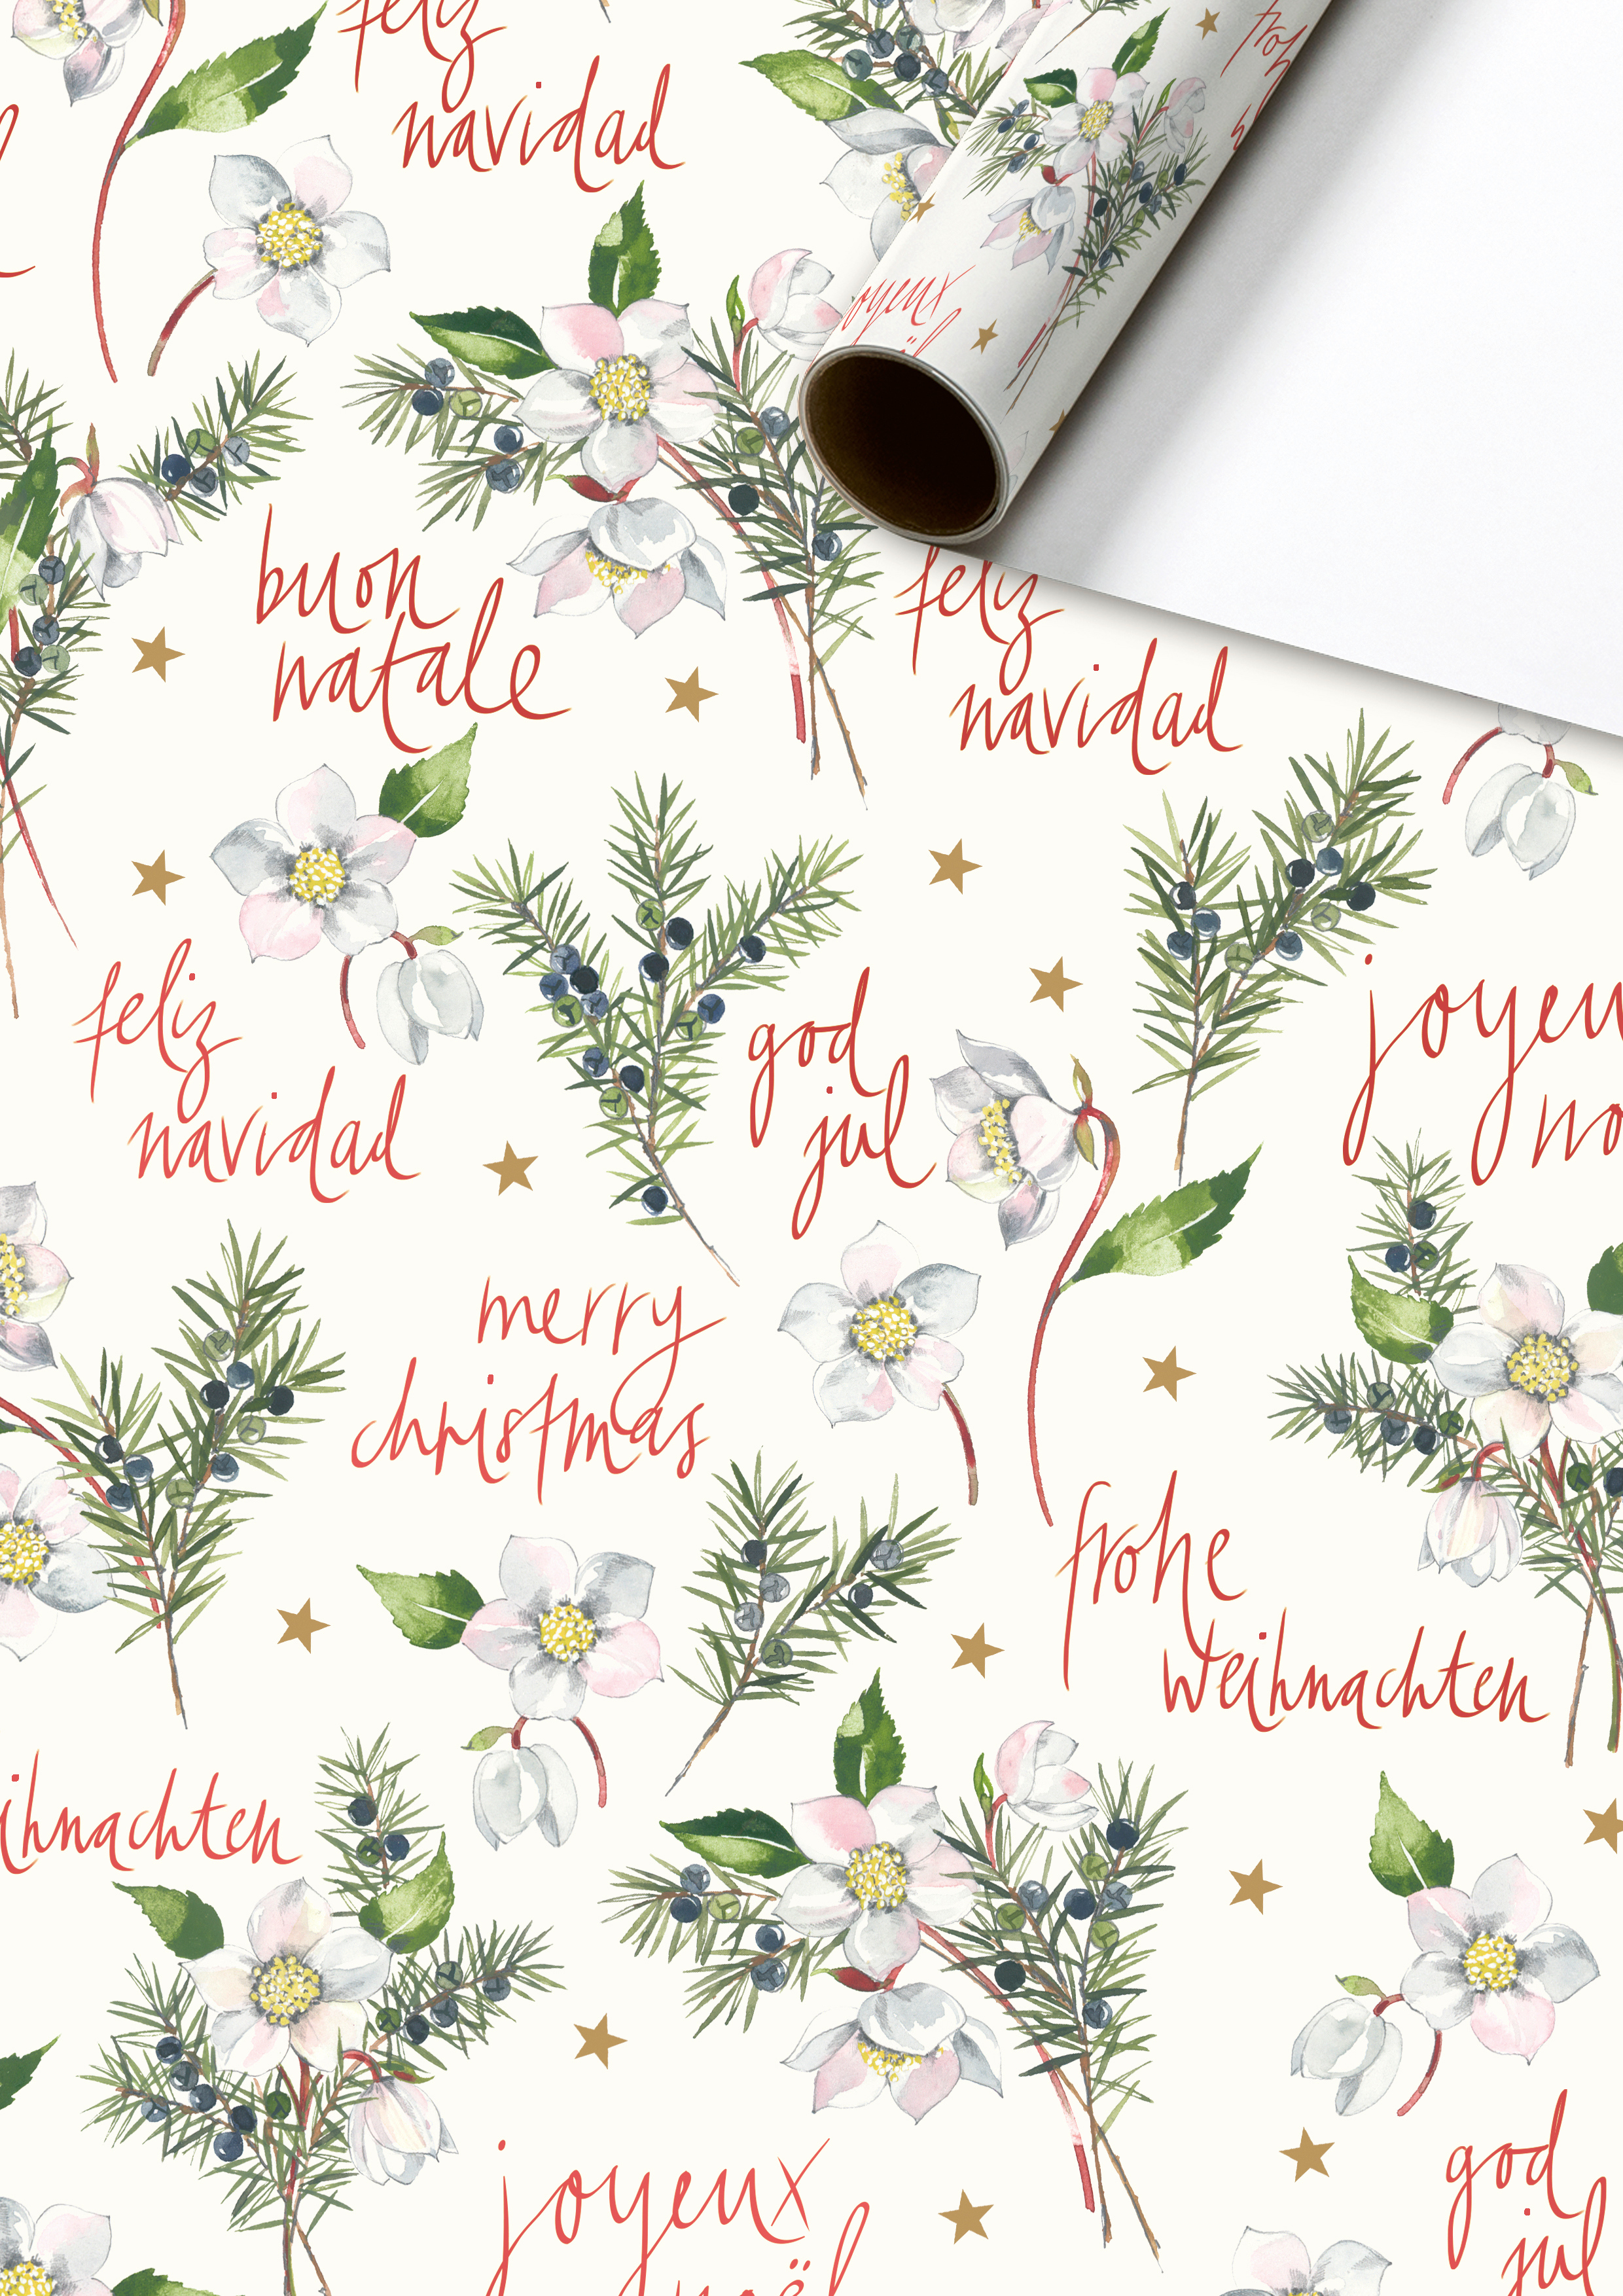 feliz
navidad
joyeux
buon
natale
feliz
navidad
feliz
navidad
god
jul
joyeu
no
merry
christmas
frohe
weihnachten
ihnachten
joyeux
noël
god
jul